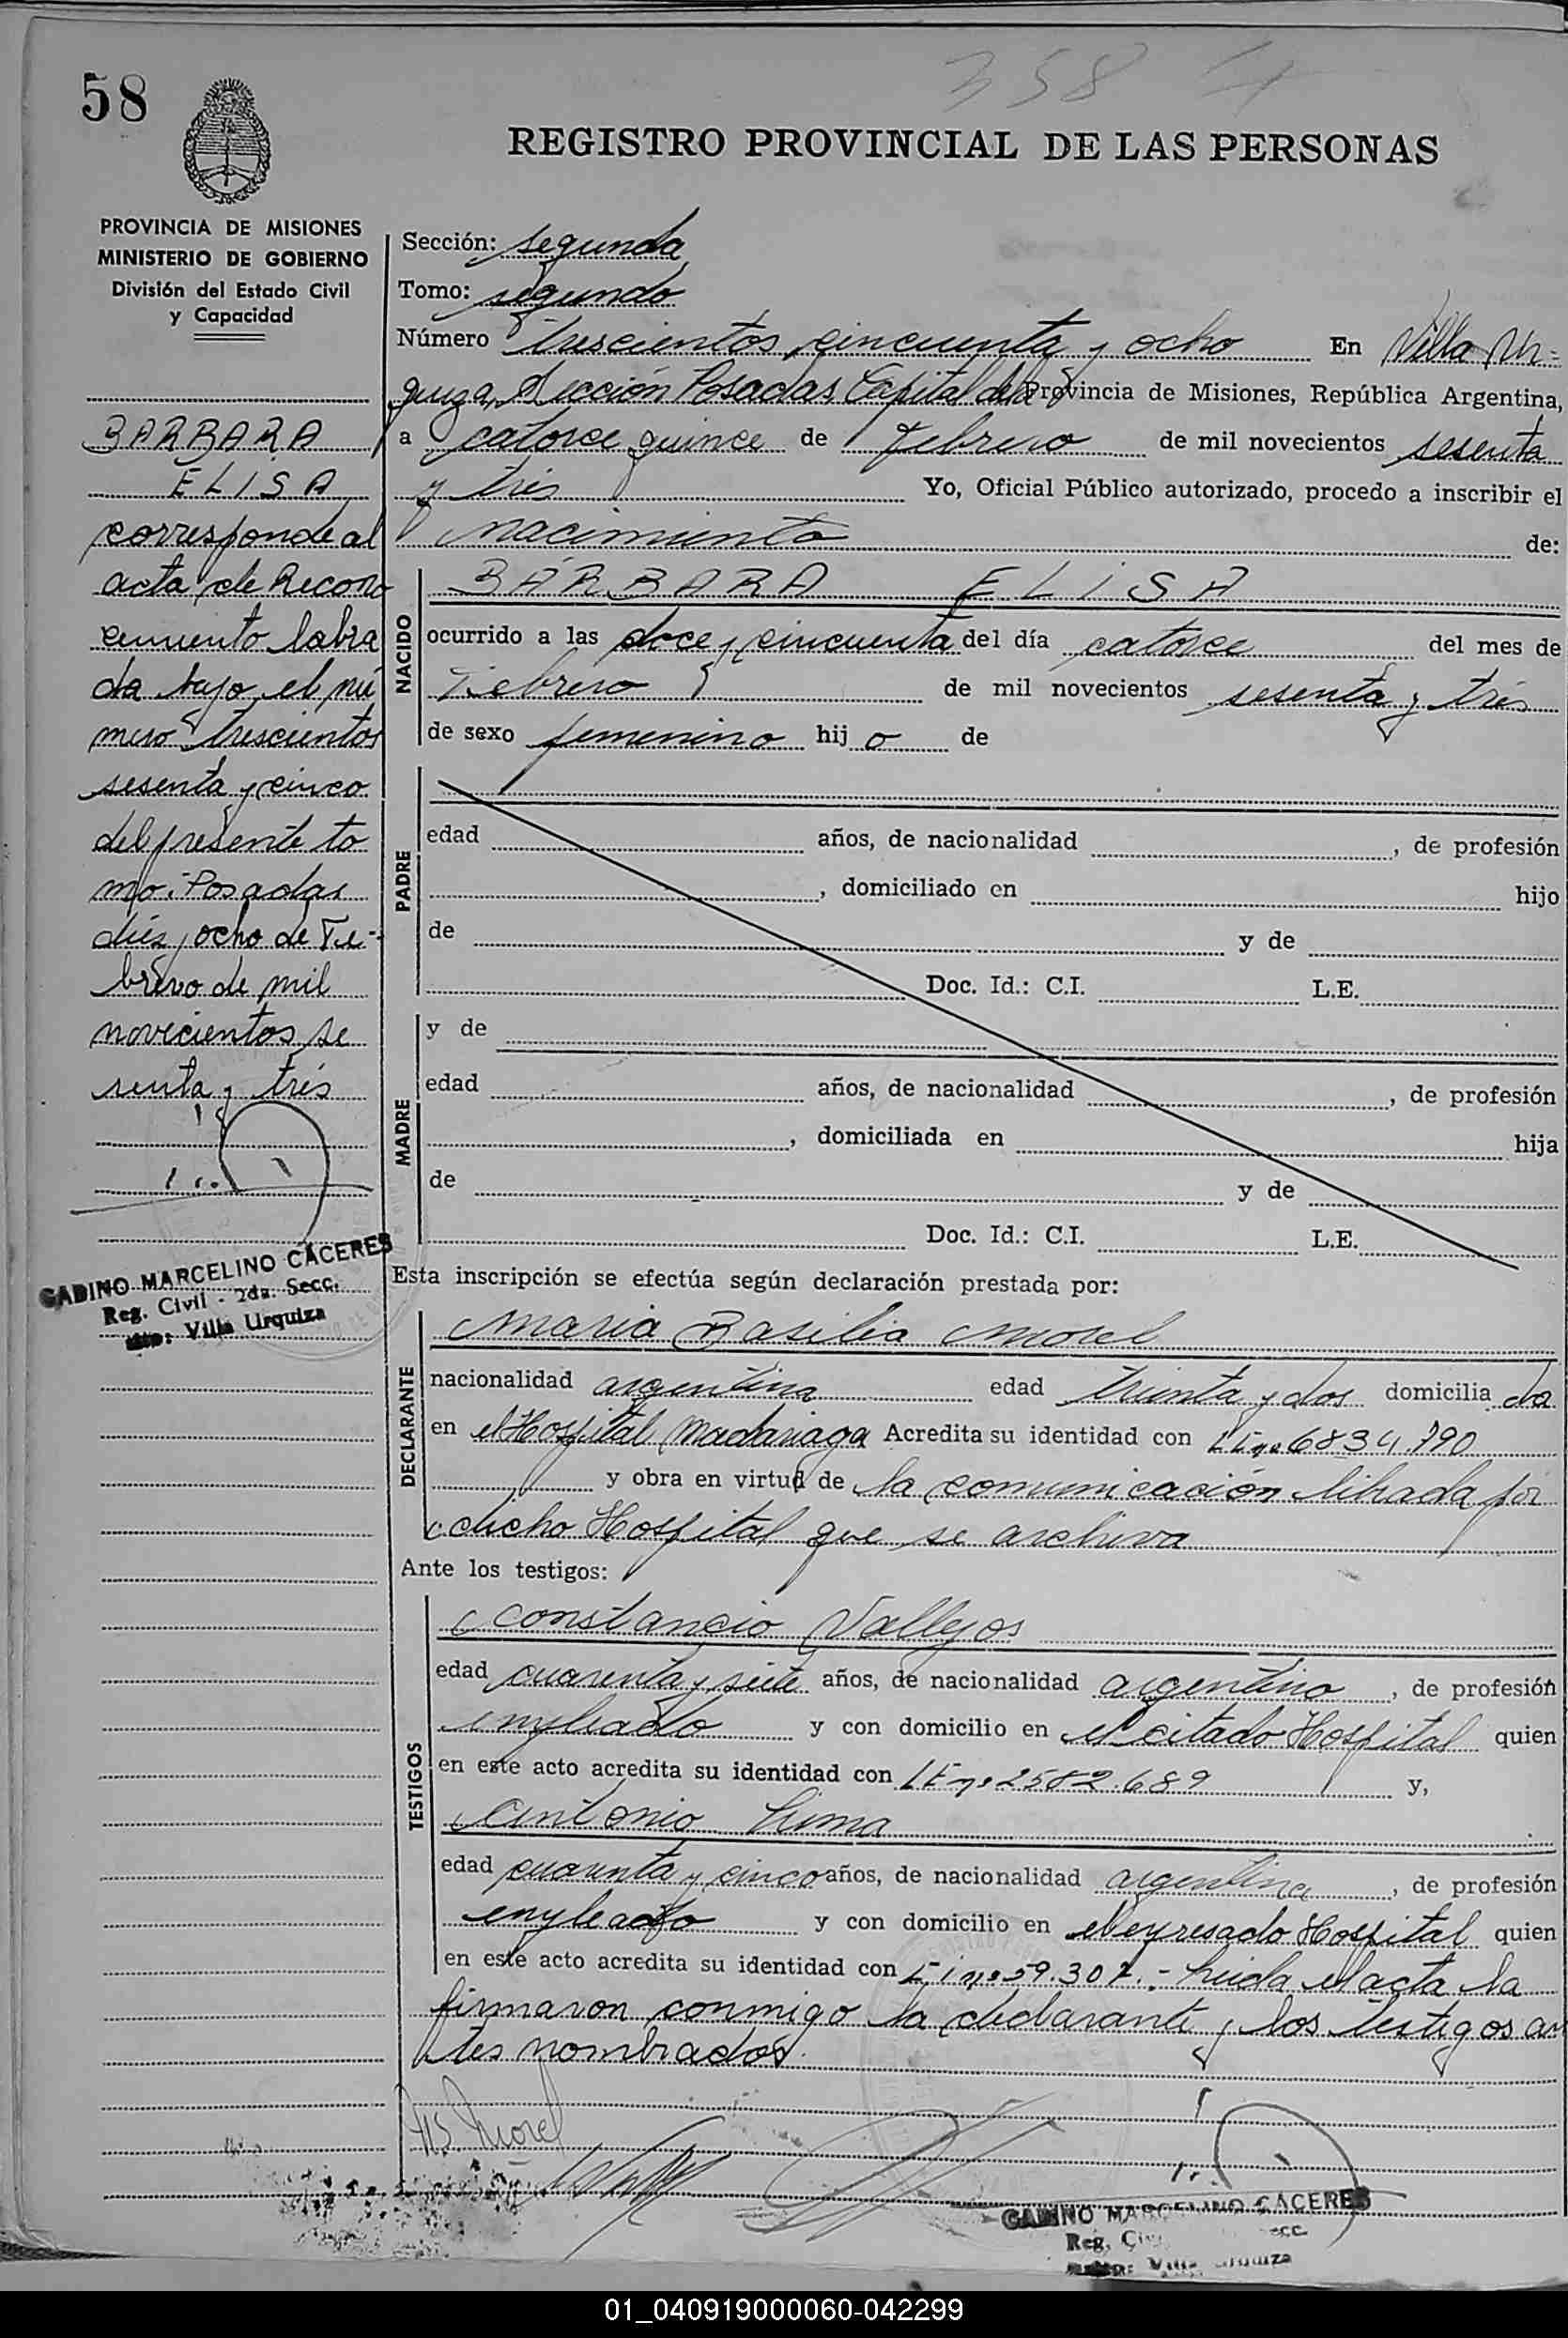 58
358
REGISTRO PROVINCIAL DE LAS PERSONAS
PROVINCIA DE MISIONES
MINISTERIO DE GOBIERNO
División del Estado Civil
y Capacidad
BARBARA
ELISA
corresponde al
acta de Recono
cimiento labra
da bajo el nú
mero trescientos
sesenta y cinco
del presente to
mo.- Posadas
diez y ocho de Fe-
brero de mil
novecientos se
senta y tres
GABINO MARCELINO CACERES
Reg. Civil - 2da. Secc.
Villa Urquiza
Sección: segunda
Tomo: segundo
Número trescientos cincuenta y ocho En Villa Ur=
quiza, Sección Posadas Capital de la Provincia de Misiones, República Argentina,
a catorce quince de Febrero de mil novecientos sesenta
y tres Yo, Oficial Público autorizado, procedo a inscribir el
nacimiento de:
NACIDO
BÁRBARA ELISA
ocurrido a las doce y cincuenta del día catorce del mes de
Febrero de mil novecientos sesenta y tres
de sexo femenino hij o de
PADRE
edad años, de nacionalidad , de profesión
, domiciliado en hijo
de y de
Doc. Id.: C.I. L.E.
MADRE
y de
edad años, de nacionalidad , de profesión
, domiciliada en hija
de y de
Doc. Id.: C.I. L.E.
Esta inscripción se efectúa según declaración prestada por:
DECLARANTE
Maria Basilia Morel
nacionalidad argentina edad treinta y dos domicilia da
en el Hospital Madariaga Acredita su identidad con
y obra en virtud de la comunicación librada por
dicho Hospital que se archiva
Ante los testigos:
TESTIGOS
Constancio Vallejos
edad cuarenta y siete años, de nacionalidad argentino , de profesión
empleado y con domicilio en el citado Hospital quien
en este acto acredita su identidad con LE nº 2582.689 y,
Antonio Lima
edad cuarenta y cinco años, de nacionalidad argentina , de profesión
empleado y con domicilio en el expresado Hospital quien
en este acto acredita su identidad con Leida el acta la
firmaron conmigo la declarante y los testigos an
tes nombrados.
Morel
GABINO MARCELINO CACERES
Reg.
01_040919000060-042299